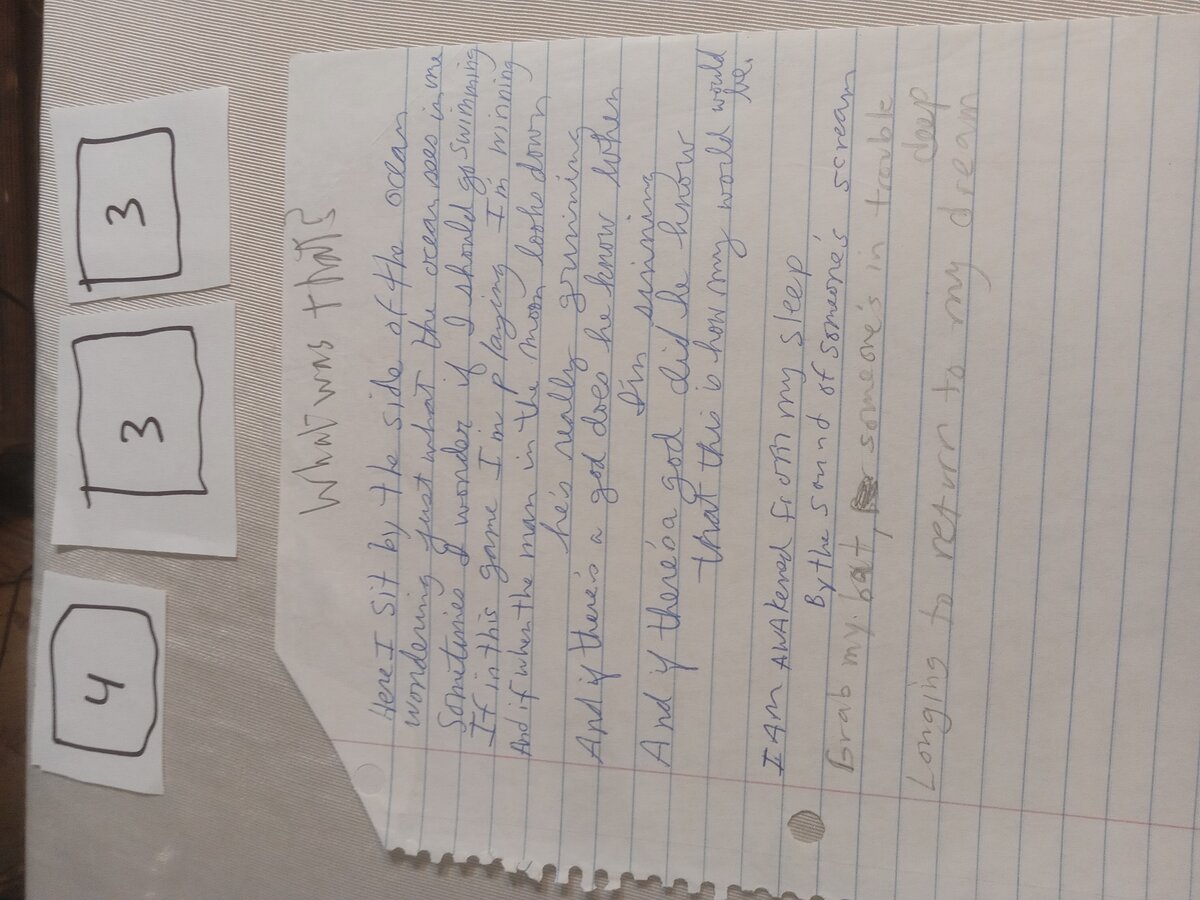 4
3
3
What was that?
Here I sit by the side of the ocean
wondering just what the ocean sees in me
Sometimes I wonder if I should go swimming
If in this game I'm playing I'm winning
And if when the man in the moon looks down
he's really grinning
And if there's a god does he know when
I'm sinning
And if there's a god did he know
that this is how my world would
be.
I AM AWAKened from my sleep
By the sound of someone's scream
Grab my bat someone's in trouble
deep
Longing to return to my dream